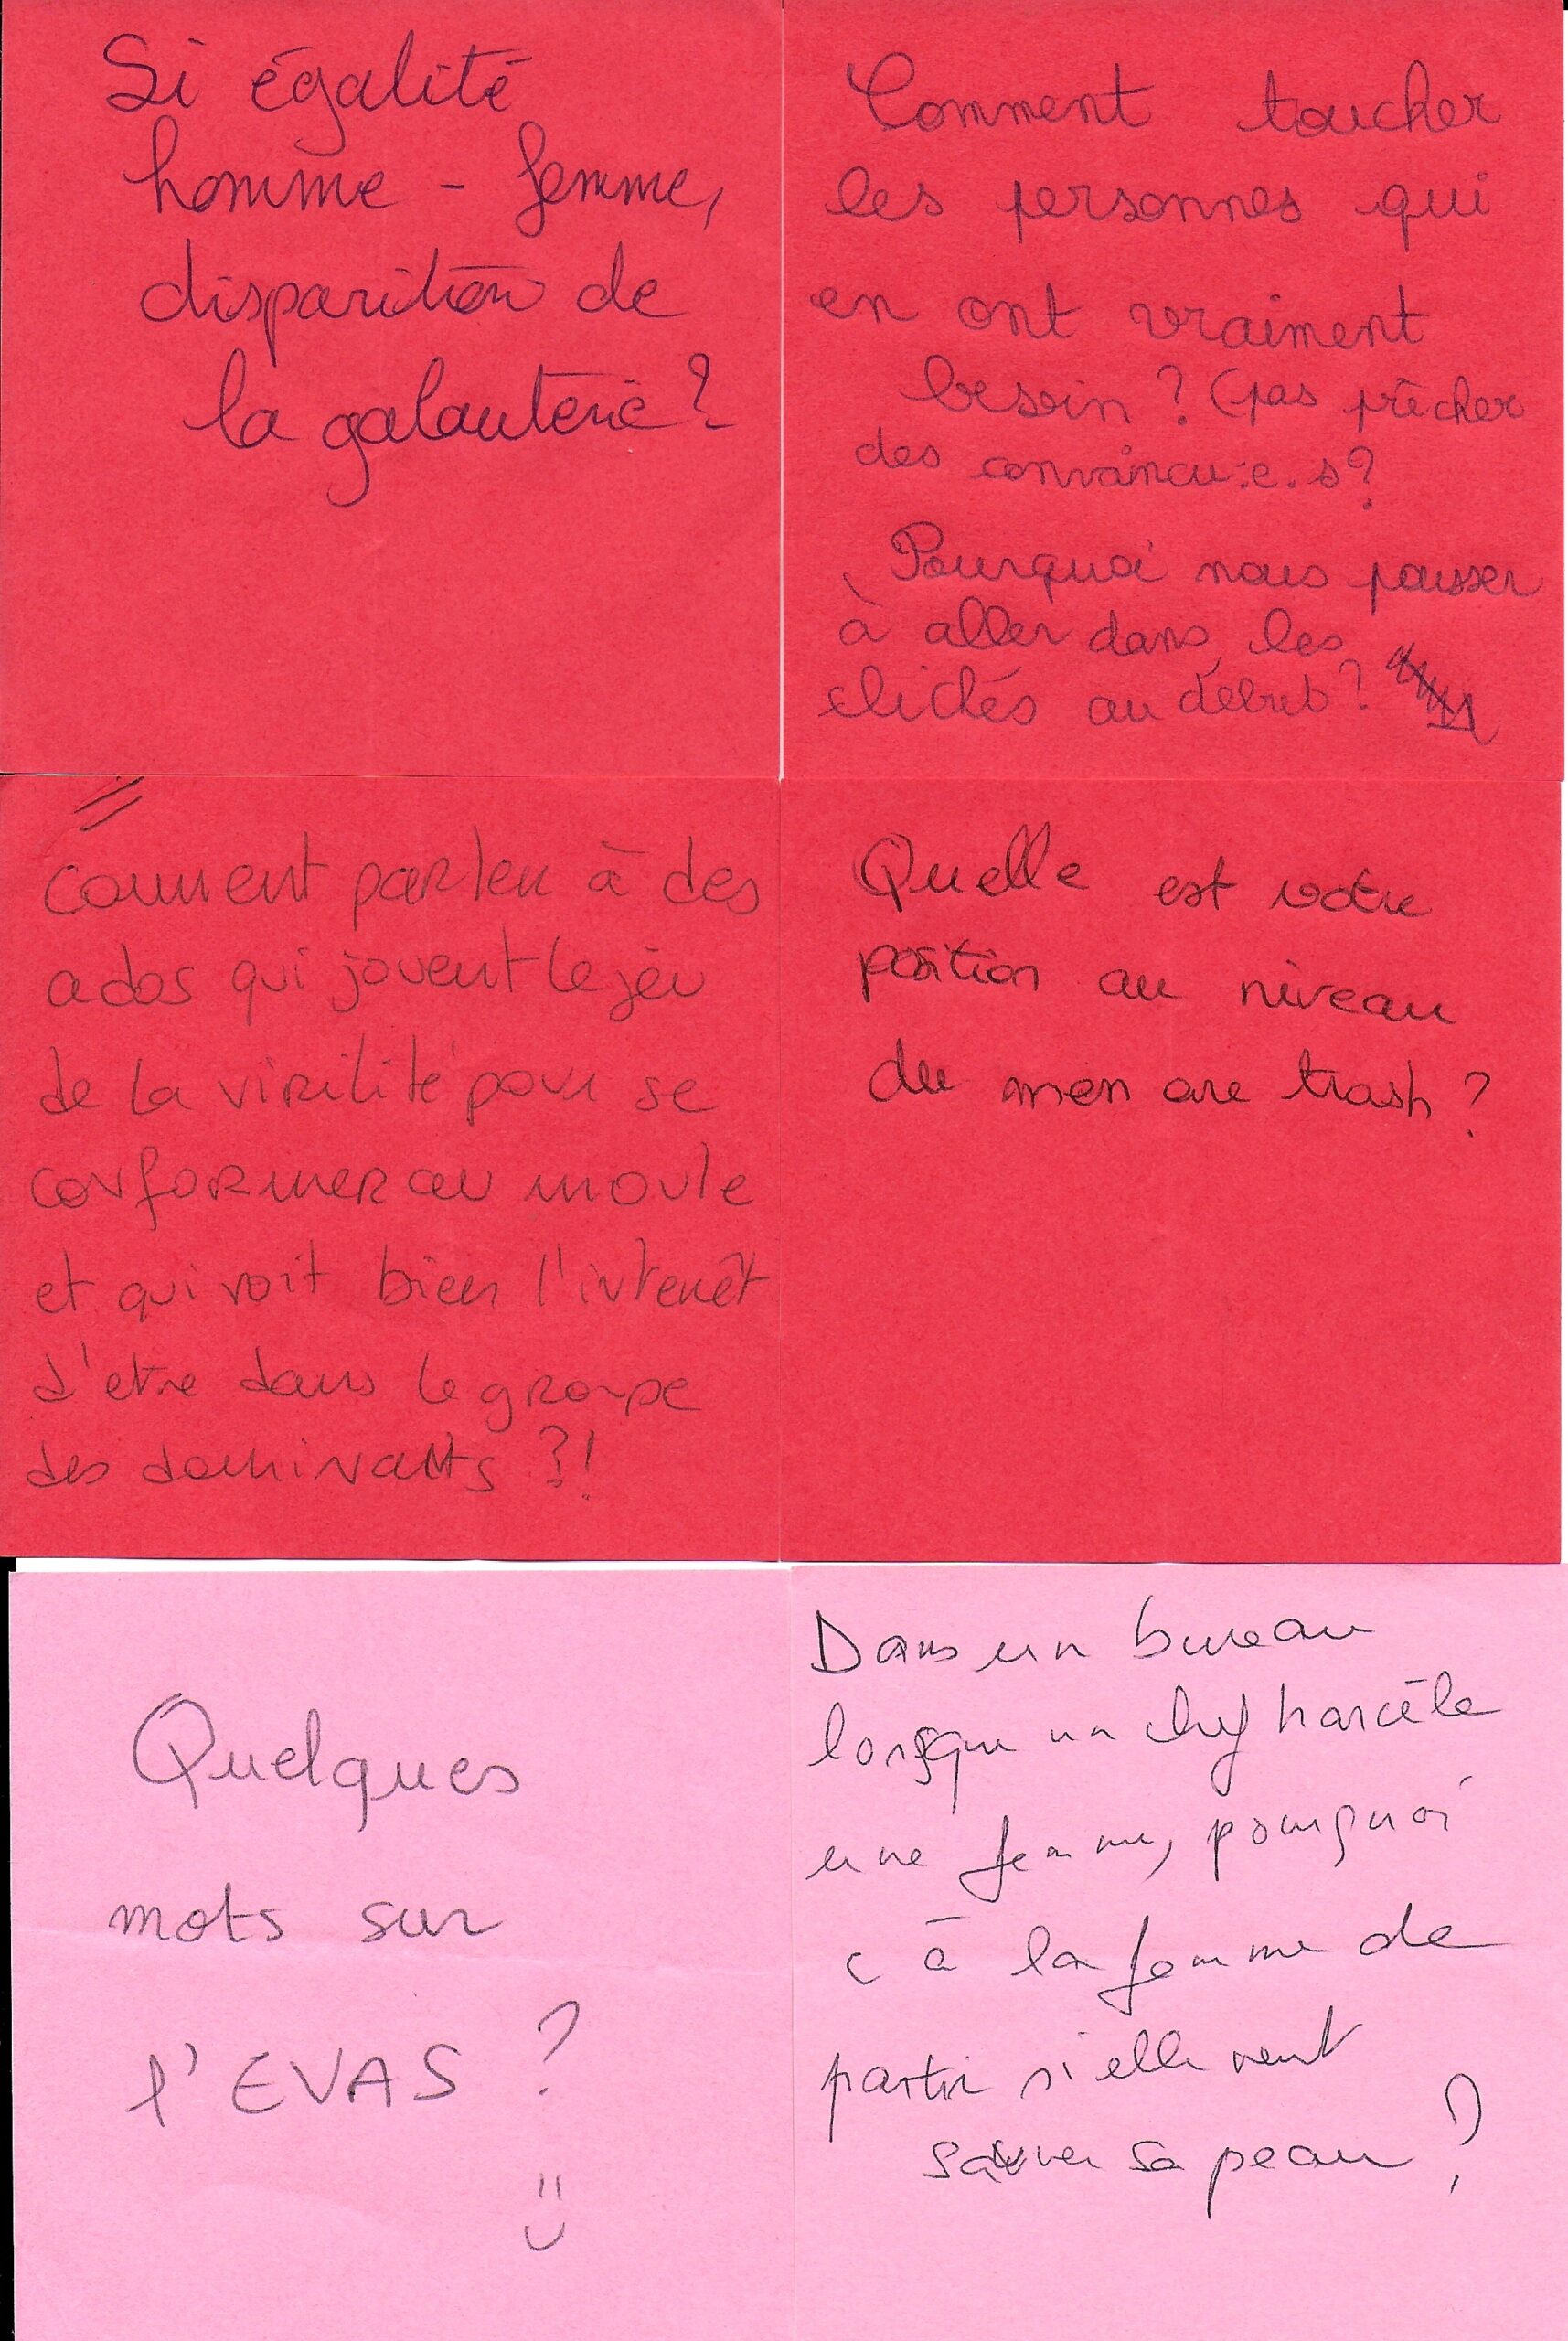 Si égalité
homme - femme,
disparition de
la galanterie ?
Comment toucher
les personnes qui
en ont vraiment
besoin ? (pas prêcher
des convaincu.e.s ?
Pourquoi nous pousser
à aller dans les
clichés au début ?
Comment parler à des
ados qui jouent le jeu
de la virilité pour se
conformer au moule
et qui voit bien l'intérêt
d'etre dans le groupe
des dominants ?!
Quelle est votre
position au niveau
du men are trash ?
Quelques
mots sur
l'EVAS ?
Dans un bureau
lorsque un chef harcèle
une femme, pourquoi
c à la femme de
partir si elle veut
sauver sa peau ?